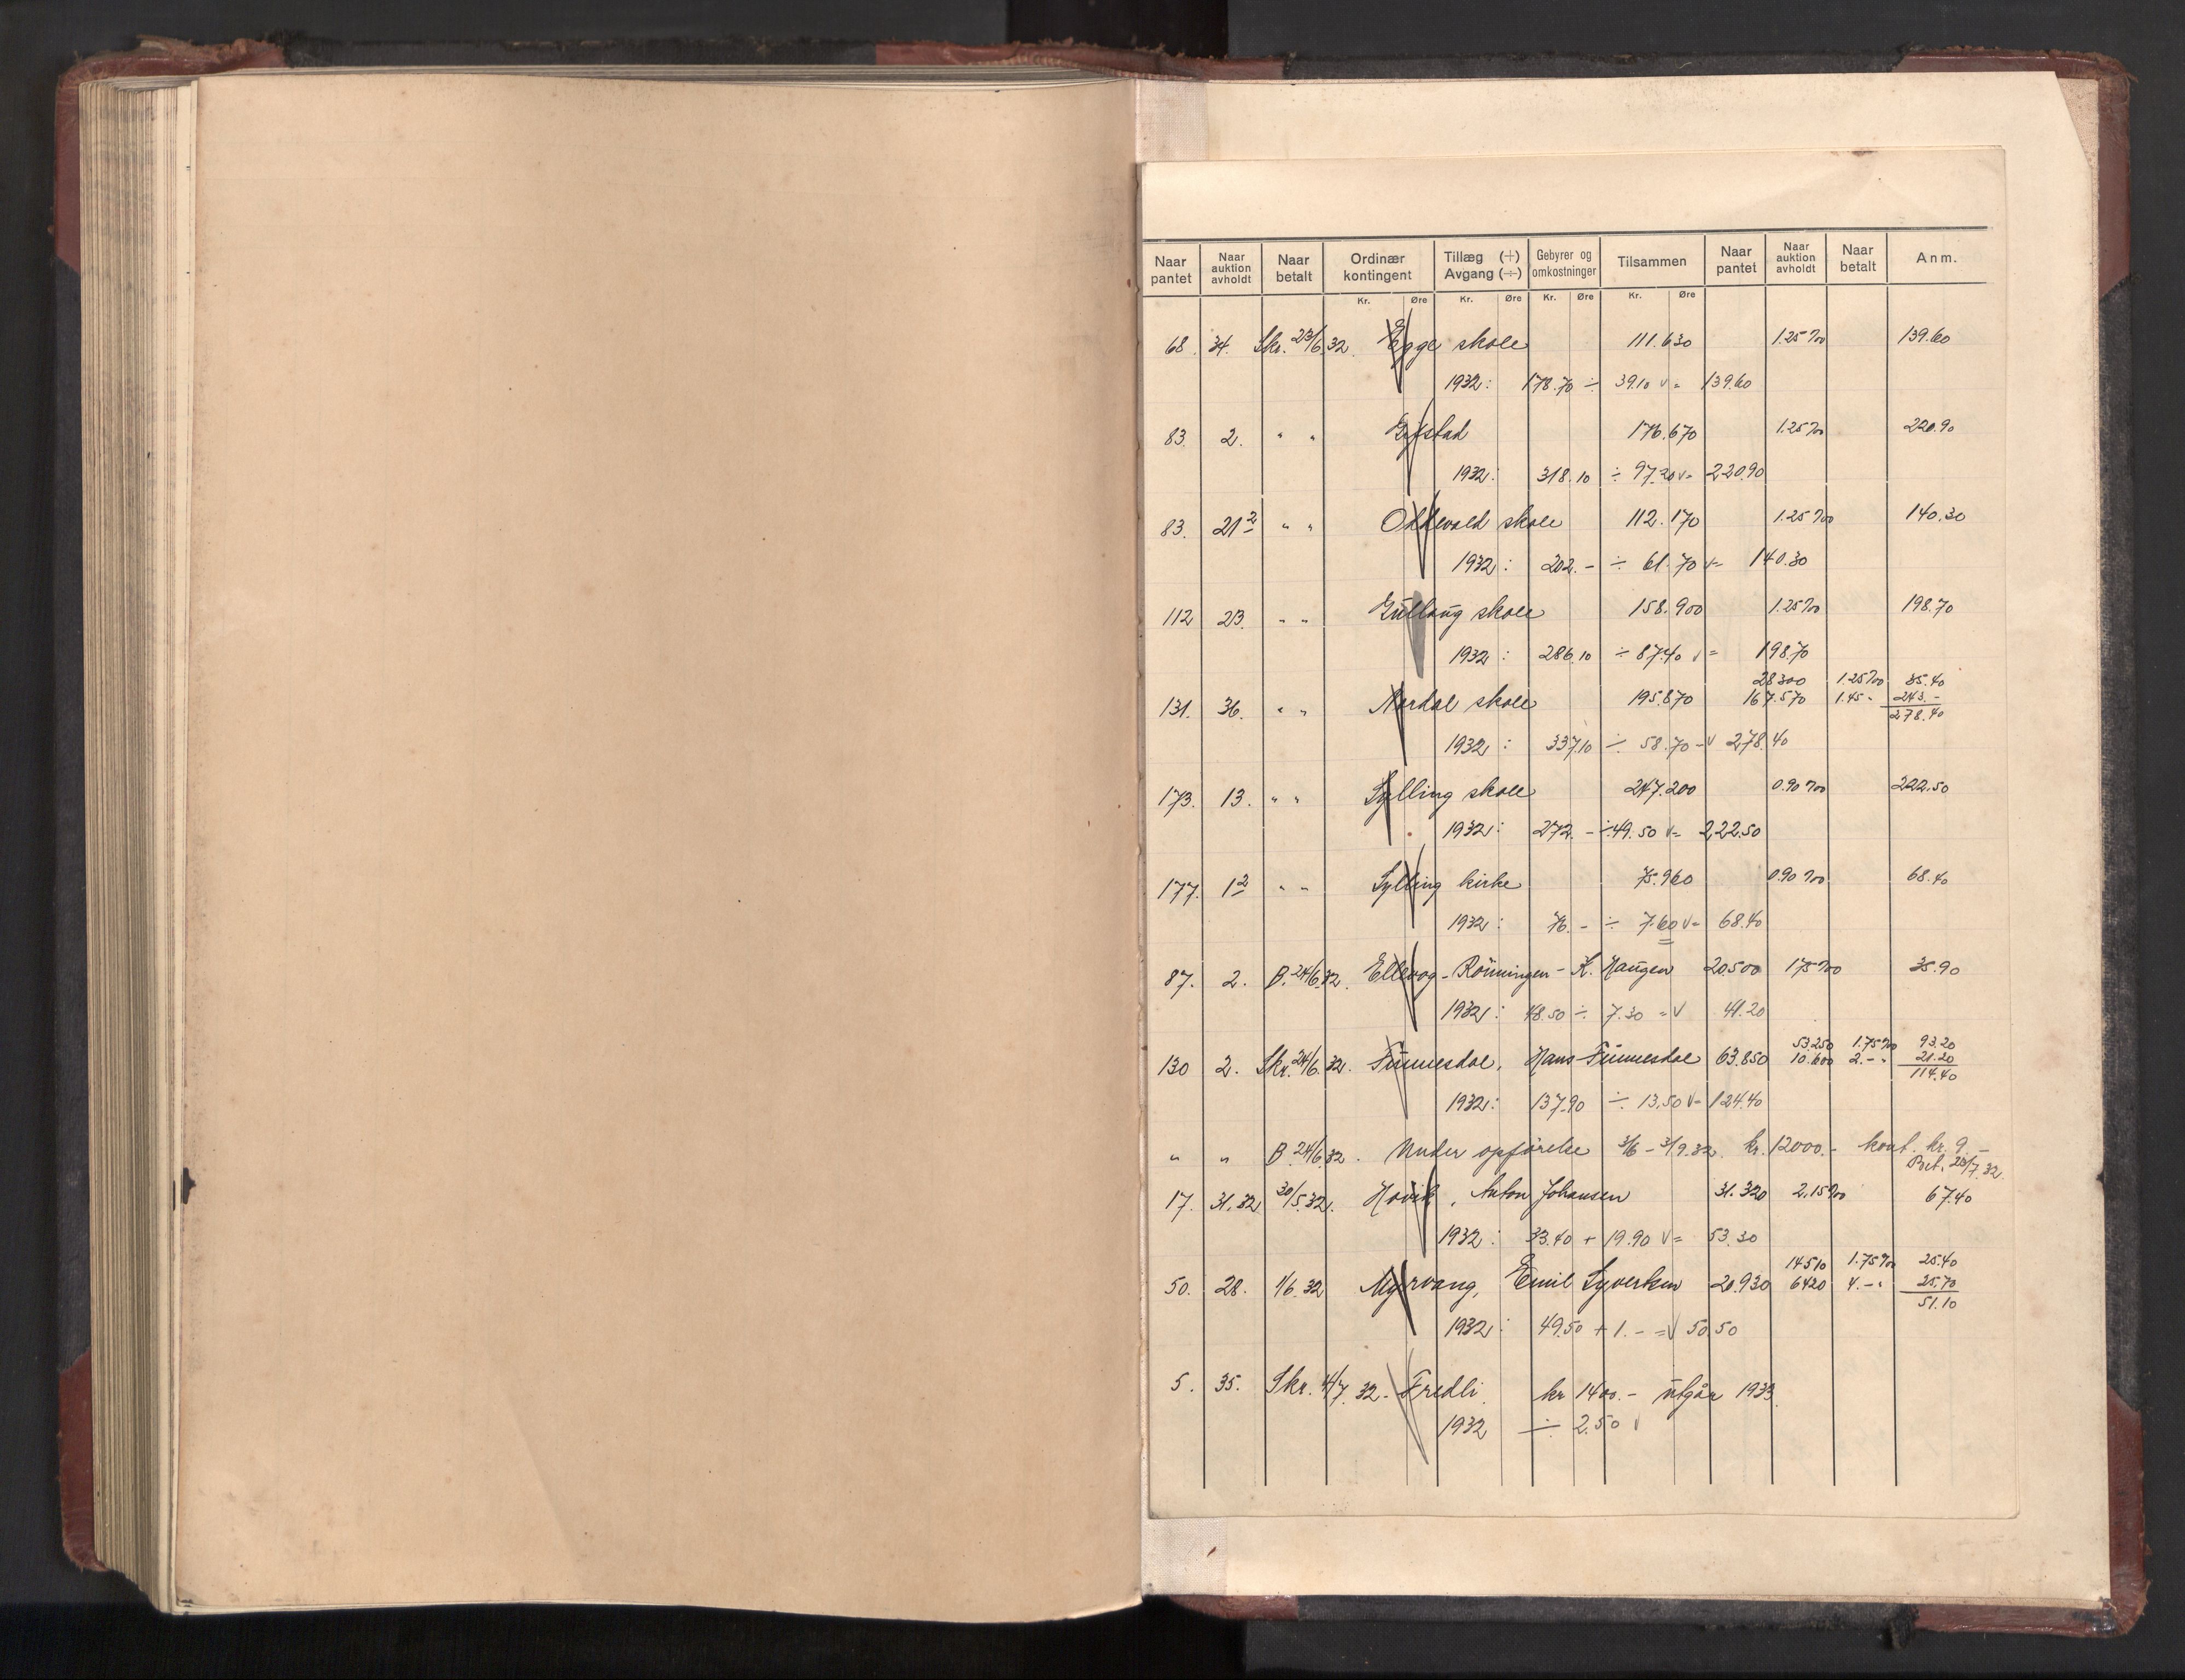 Naar pantet | Naar auktion avholdt | Naar betalt | Ordinær kontingent | Tillæg (+) Avgang (÷) | Gebyrer og omkostninger | Tilsammen | Naar pantet | Naar auktion avholdt | Naar betalt | Anm.
Kr. Øre Kr. Øre Kr. Øre Kr. Øre
68. 34. Skr. 23/6.32. Egge skole 111.630 1.25 ‰ 139.60
1932: 178.70 ÷ 39.10 v = 139.60
83. 2. " " 176.670 1.25 ‰ 220.90
1932: 318.10 ÷ 97.20 v = 220.90
83. 21² " " Oddevald skole 112.170 1.25 ‰ 140.30
1932: 202.- ÷ 61.70 v = 140.30
112 23. " " Gullaug skole 158.900 1.25 ‰ 198.70
1932: 286.10 ÷ 87.40 v = 198.70
28300 1.25 ‰ 35.40
131. 36. " " Nordal skole 195.870 167.570 1.45 " 243.-
278.40
1932: 337.10 ÷ 58.70 = v 278.40
173. 13. " " Sylling skole 247.200 0.90 ‰ 222.50
1932: 272.- ÷ 49.50 v = 222.50
177. 1² " " Sylling kirke 75.960 0.90 ‰ 68.40
1932: 76.- ÷ 7.60 v = 68.40
87. 2. B. 24/6.32. - Rönningen - K. Haugen 20.500 1.75 ‰ 35.90
1932: 48.50 ÷ 7.30 = v 41.20
53.250 1.75 ‰ 93.20
130 2. Skr. 24/6.32. Finnesdal, Hans Finnesdal 63.850 10.600 2.- " 21.20
114.40
1932: 137.90 ÷ 13.50 v = 124.40
" " B. 24/6.32. Under opförelse 3/6 - 3/9.32. kr. 12000.- kont. kr. 9.-
Bet. 23/7.32.
17. 31.32 30/5.32. Hovik, Anton Johansen 31.320 2.15 ‰ 67.40
1932: 33.40 + 19.90 v = 53.30
14510 1.75 ‰ 25.40
50. 28. 1/6.32 Myrvang, Emil Syversen 20.930 6420 4.- " 25.70
51.10
1932: 49.50 + 1.- = v 50.50
5. 35. Skr. 4/7.32. Fredli. kr 1400.- utgår 1933.
1932 ÷ 2.50 v